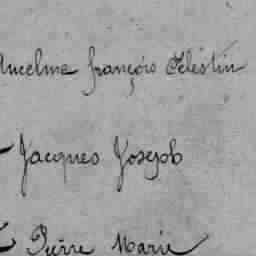 Ancelme françois Celestin
Jacques Joseph
Pierre Marie